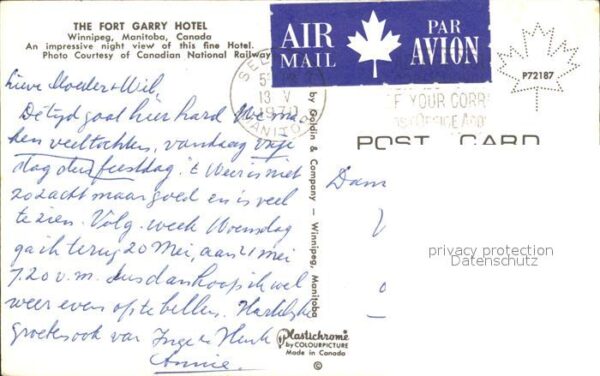 THE FORT GARRY HOTEL
Winnipeg, Manitoba, Canada
An impressive night view of this fine Hotel.
Photo Courtesy of Canadian National Railway
AIR
MAIL
PAR
AVION
P72187
13 V
1970
MANITOBA
F YOUR CORR
POST CARD
by Goldin & Company — Winnipeg, Manitoba
Lieve Moeder + Wil,
De tyd gaat hier hard We ma-
ken veel tochten, vandaag vrije
dag dus feestdag. 't Weer is niet
zo zacht maar goed en is veel
te zien. Volg. week Woensdag
ga ik terug 20 Mei, aan 21 mei
7.20 v.m. dus dan hoop ik wel
weer even op te bellen. Hartelijke
groeten ook van Inge en Henk
Annie.
Dam
privacy protection
Datenschutz
Plastichrome
by COLOURPICTURE
Made in Canada
©